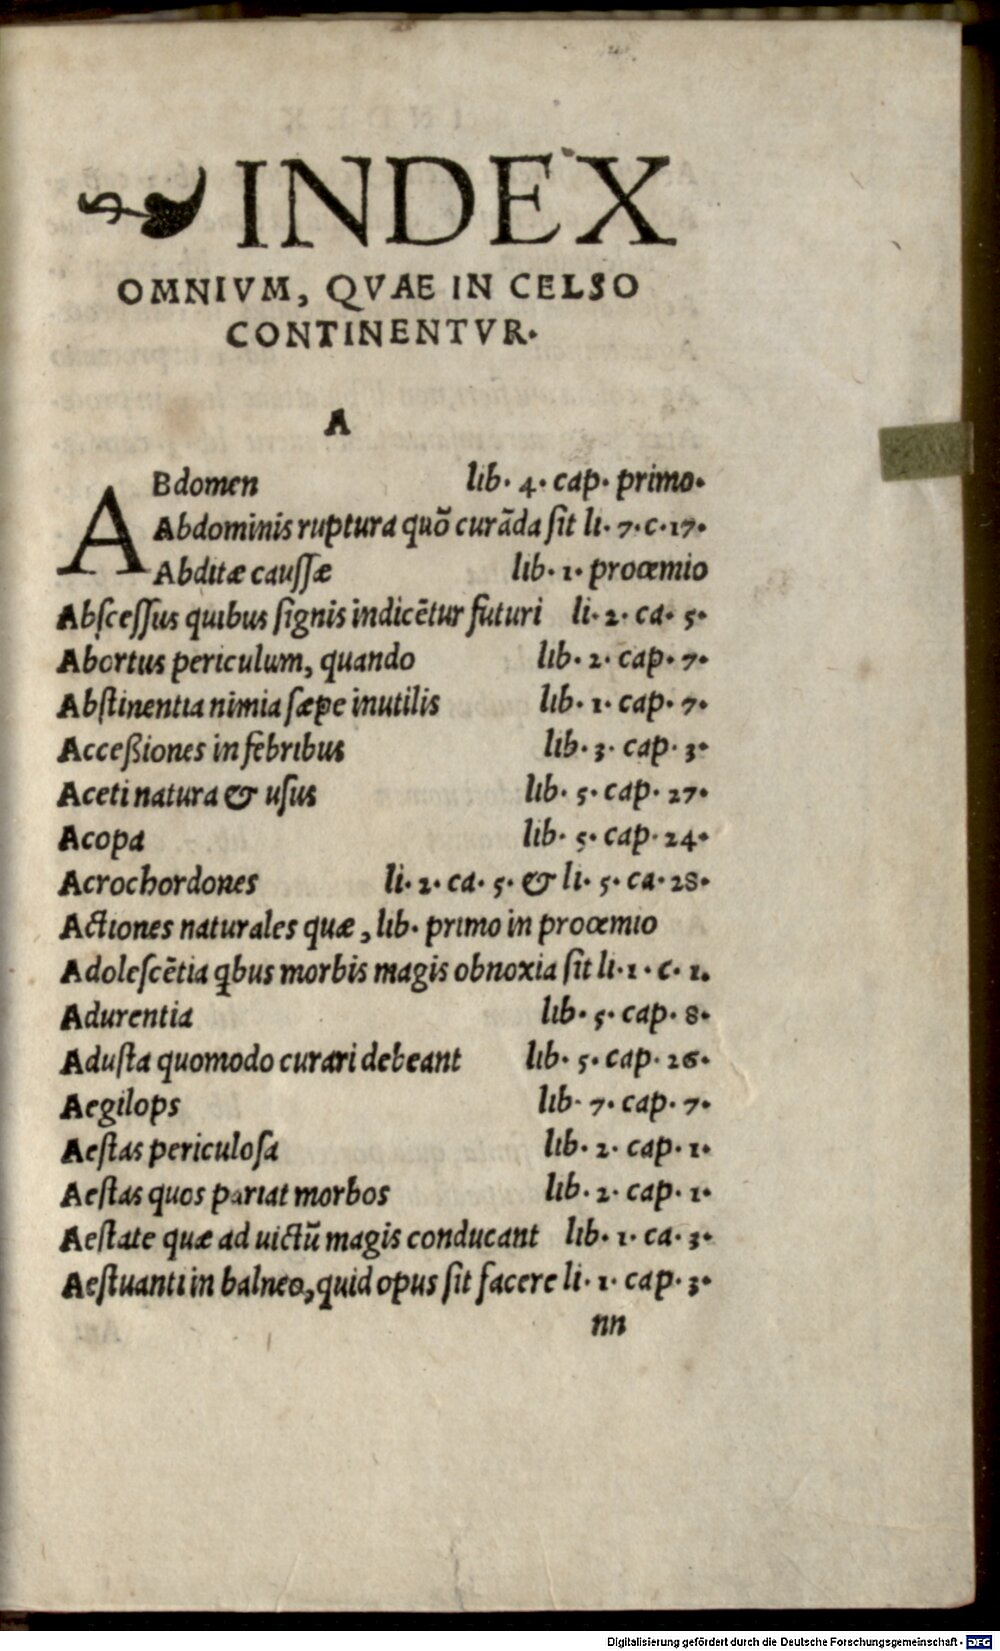 ❧ INDEX
OMNIVM, QVAE IN CELSO
CONTINENTVR.
A
ABdomen lib. 4. cap. primo.
Abdominis ruptura quõ curãda ſit li. 7. c. 17.
Abditæ cauſſæ lib. 1. proœmio
Abſceſſus quibus ſignis indicẽtur futuri li. 2. ca. 5.
Abortus periculum, quando lib. 2. cap. 7.
Abſtinentia nimia ſæpe inutilis lib. 1. cap. 7.
Acceßiones in febribus lib. 3. cap. 3.
Aceti natura & uſus lib. 5. cap. 27.
Acopa lib. 5. cap. 24.
Acrochordones li. 2. ca. 5. & li. 5. ca. 28.
Actiones naturales quæ, lib. primo in proœmio
Adoleſcẽtia ꝗbus morbis magis obnoxia ſit li. 1. c. 1.
Adurentia lib. 5. cap. 8.
Aduſta quomodo curari debeant lib. 5. cap. 26.
Aegilops lib. 7. cap. 7.
Aeſtas periculoſa lib. 2. cap. 1.
Aeſtas quos pariat morbos lib. 2. cap. 1.
Aeſtate quæ ad uictũ magis conducant lib. 1. ca. 3.
Aeſtuanti in balneo, quid opus ſit facere li. 1. cap. 3.
nn
Digitalisierung gefördert durch die Deutsche Forschungsgemeinschaft - DFG